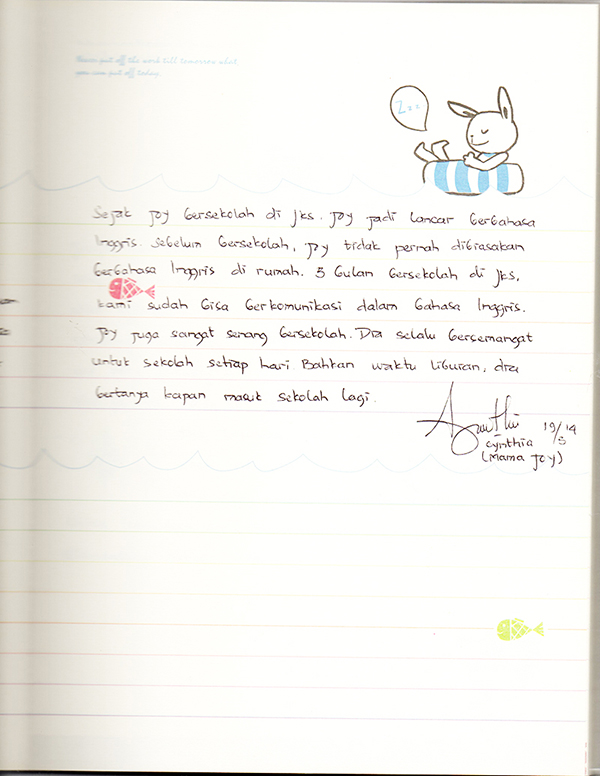 Never put off the work till tomorrow what
you can put off today.
Zzz
Sejak Joy bersekolah di jks. Joy jadi lancar berbahasa
Inggris. Sebelum bersekolah, Joy tidak pernah dibiasakan
berbahasa Inggris di rumah. 5 bulan bersekolah di jks,
kami sudah bisa berkomunikasi dalam bahasa Inggris.
Joy juga sangat senang bersekolah. Dia selalu bersemangat
untuk sekolah setiap hari Bahkan waktu liburan, dia
bertanya kapan masuk sekolah lagi.
19/5 14
Cynthia
(Mama Joy)